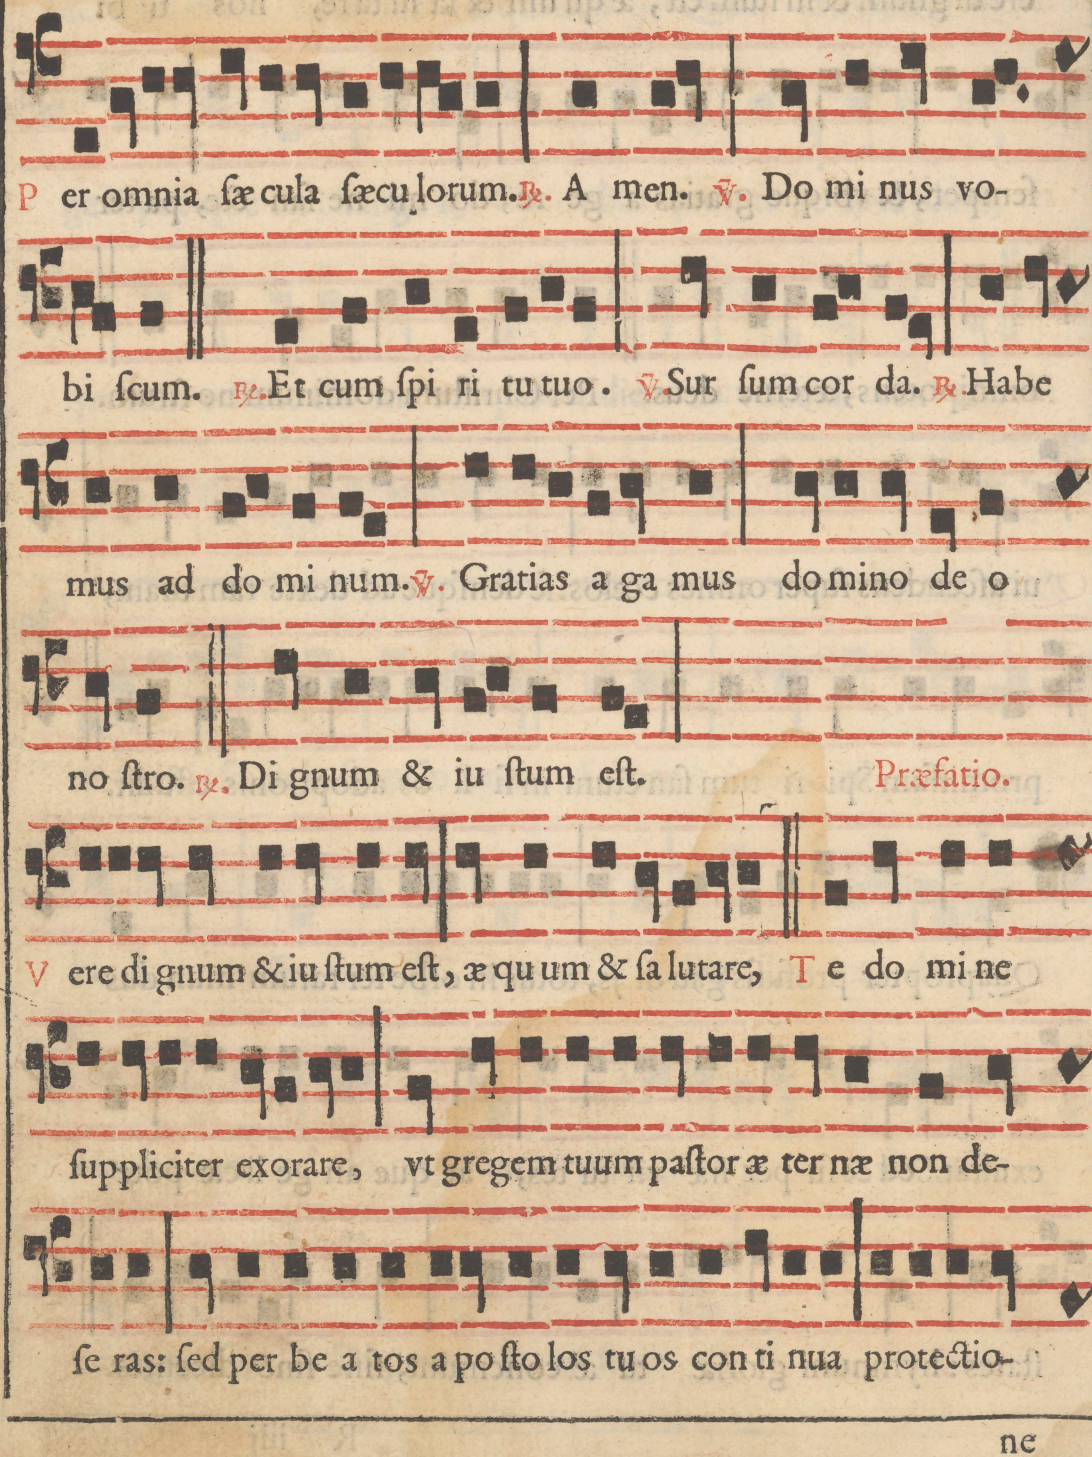 P er omnia ſæ cula ſæcu lorum. ℟. A men. ℣. Do mi nus vo-
bi ſcum. ℟. Et cum ſpi ri tu tuo. ℣. Sur ſum cor da. ℟. Habe
mus ad do mi num. ℣. Gratias a ga mus do mino de o
no ſtro. ℟. Di gnum & iu ſtum eſt. Præfatio.
V ere di gnum & iu ſtum eſt, æ qu um & ſa lutare, T e do mi ne
ſuppliciter exorare, vt gregem tuum paſtor æ ter næ non de-
ſe ras: ſed per be a tos a po ſto los tu os con ti nua protectio-
ne